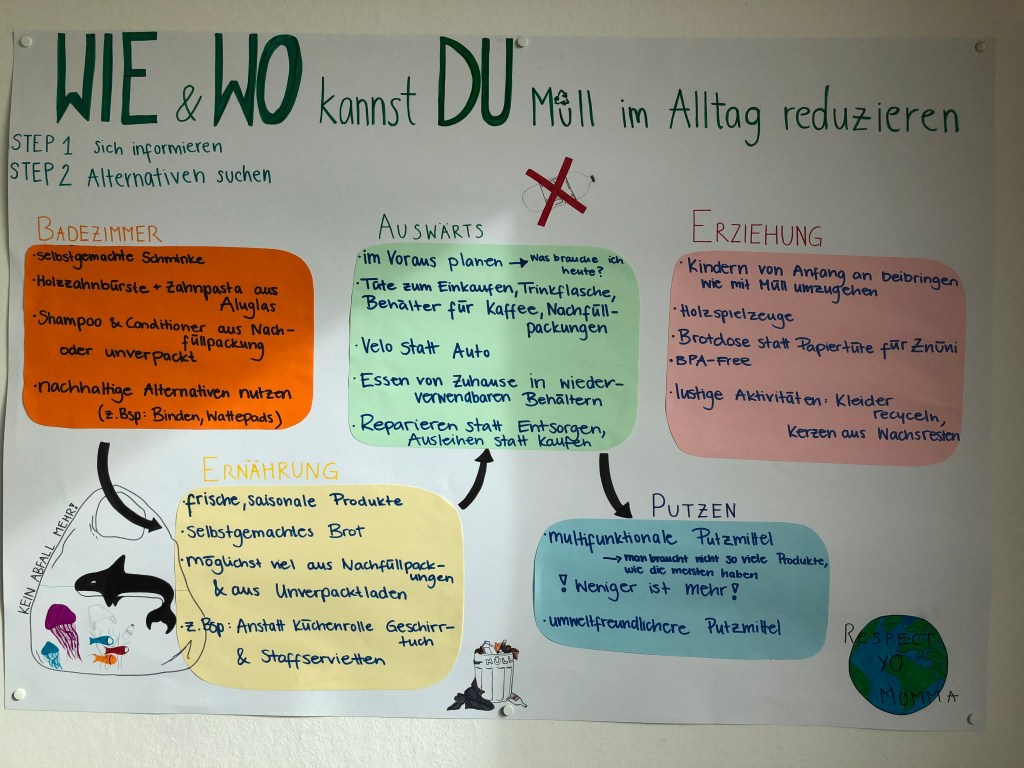 WIE & WO kannst DU Müll im Alltag reduzieren
STEP 1 Sich informieren
STEP 2 Alternativen suchen
BADEZIMMER
·selbstgemachte Schminke
·Holzzahnbürste + Zahnpasta aus
Aluglas
·Shampoo & Conditioner aus Nach-
füllpackung
oder unverpackt
·nachhaltige Alternativen nutzen
(z.Bsp: Binden, Wattepads)
ERNÄHRUNG
·frische, saisonale Produkte
·selbstgemachtes Brot
·möglichst viel aus Nachfüllpack-
ungen
& aus Unverpacktladen
·z.Bsp: Anstatt Küchenrolle Geschirr-
tuch
& Staffservietten
AUSWÄRTS
·im Voraus planen → Was brauche ich
heute?
·Tüte zum Einkaufen, Trinkflasche,
Behälter für Kaffee, Nachfüll-
packungen
·Velo statt Auto
·Essen von Zuhause in wieder-
verwendbaren Behältern
·Reparieren statt Entsorgen,
Ausleihen statt Kaufen
PUTZEN
·multifunktionale Putzmittel
→ man braucht nicht so viele Produkte,
wie die meisten haben
! Weniger ist mehr !
·umweltfreundlichere Putzmittel
ERZIEHUNG
·Kindern von Anfang an beibringen
wie mit Müll umzugehen
·Holzspielzeuge
·Brotdose statt Papiertüte für Znüni
·BPA-Free
·lustige Aktivitäten: Kleider
recyceln,
Kerzen aus Wachsresten
KEIN ABFALL MEHR!
MÜLL
RESPECT
YO
MOMMA